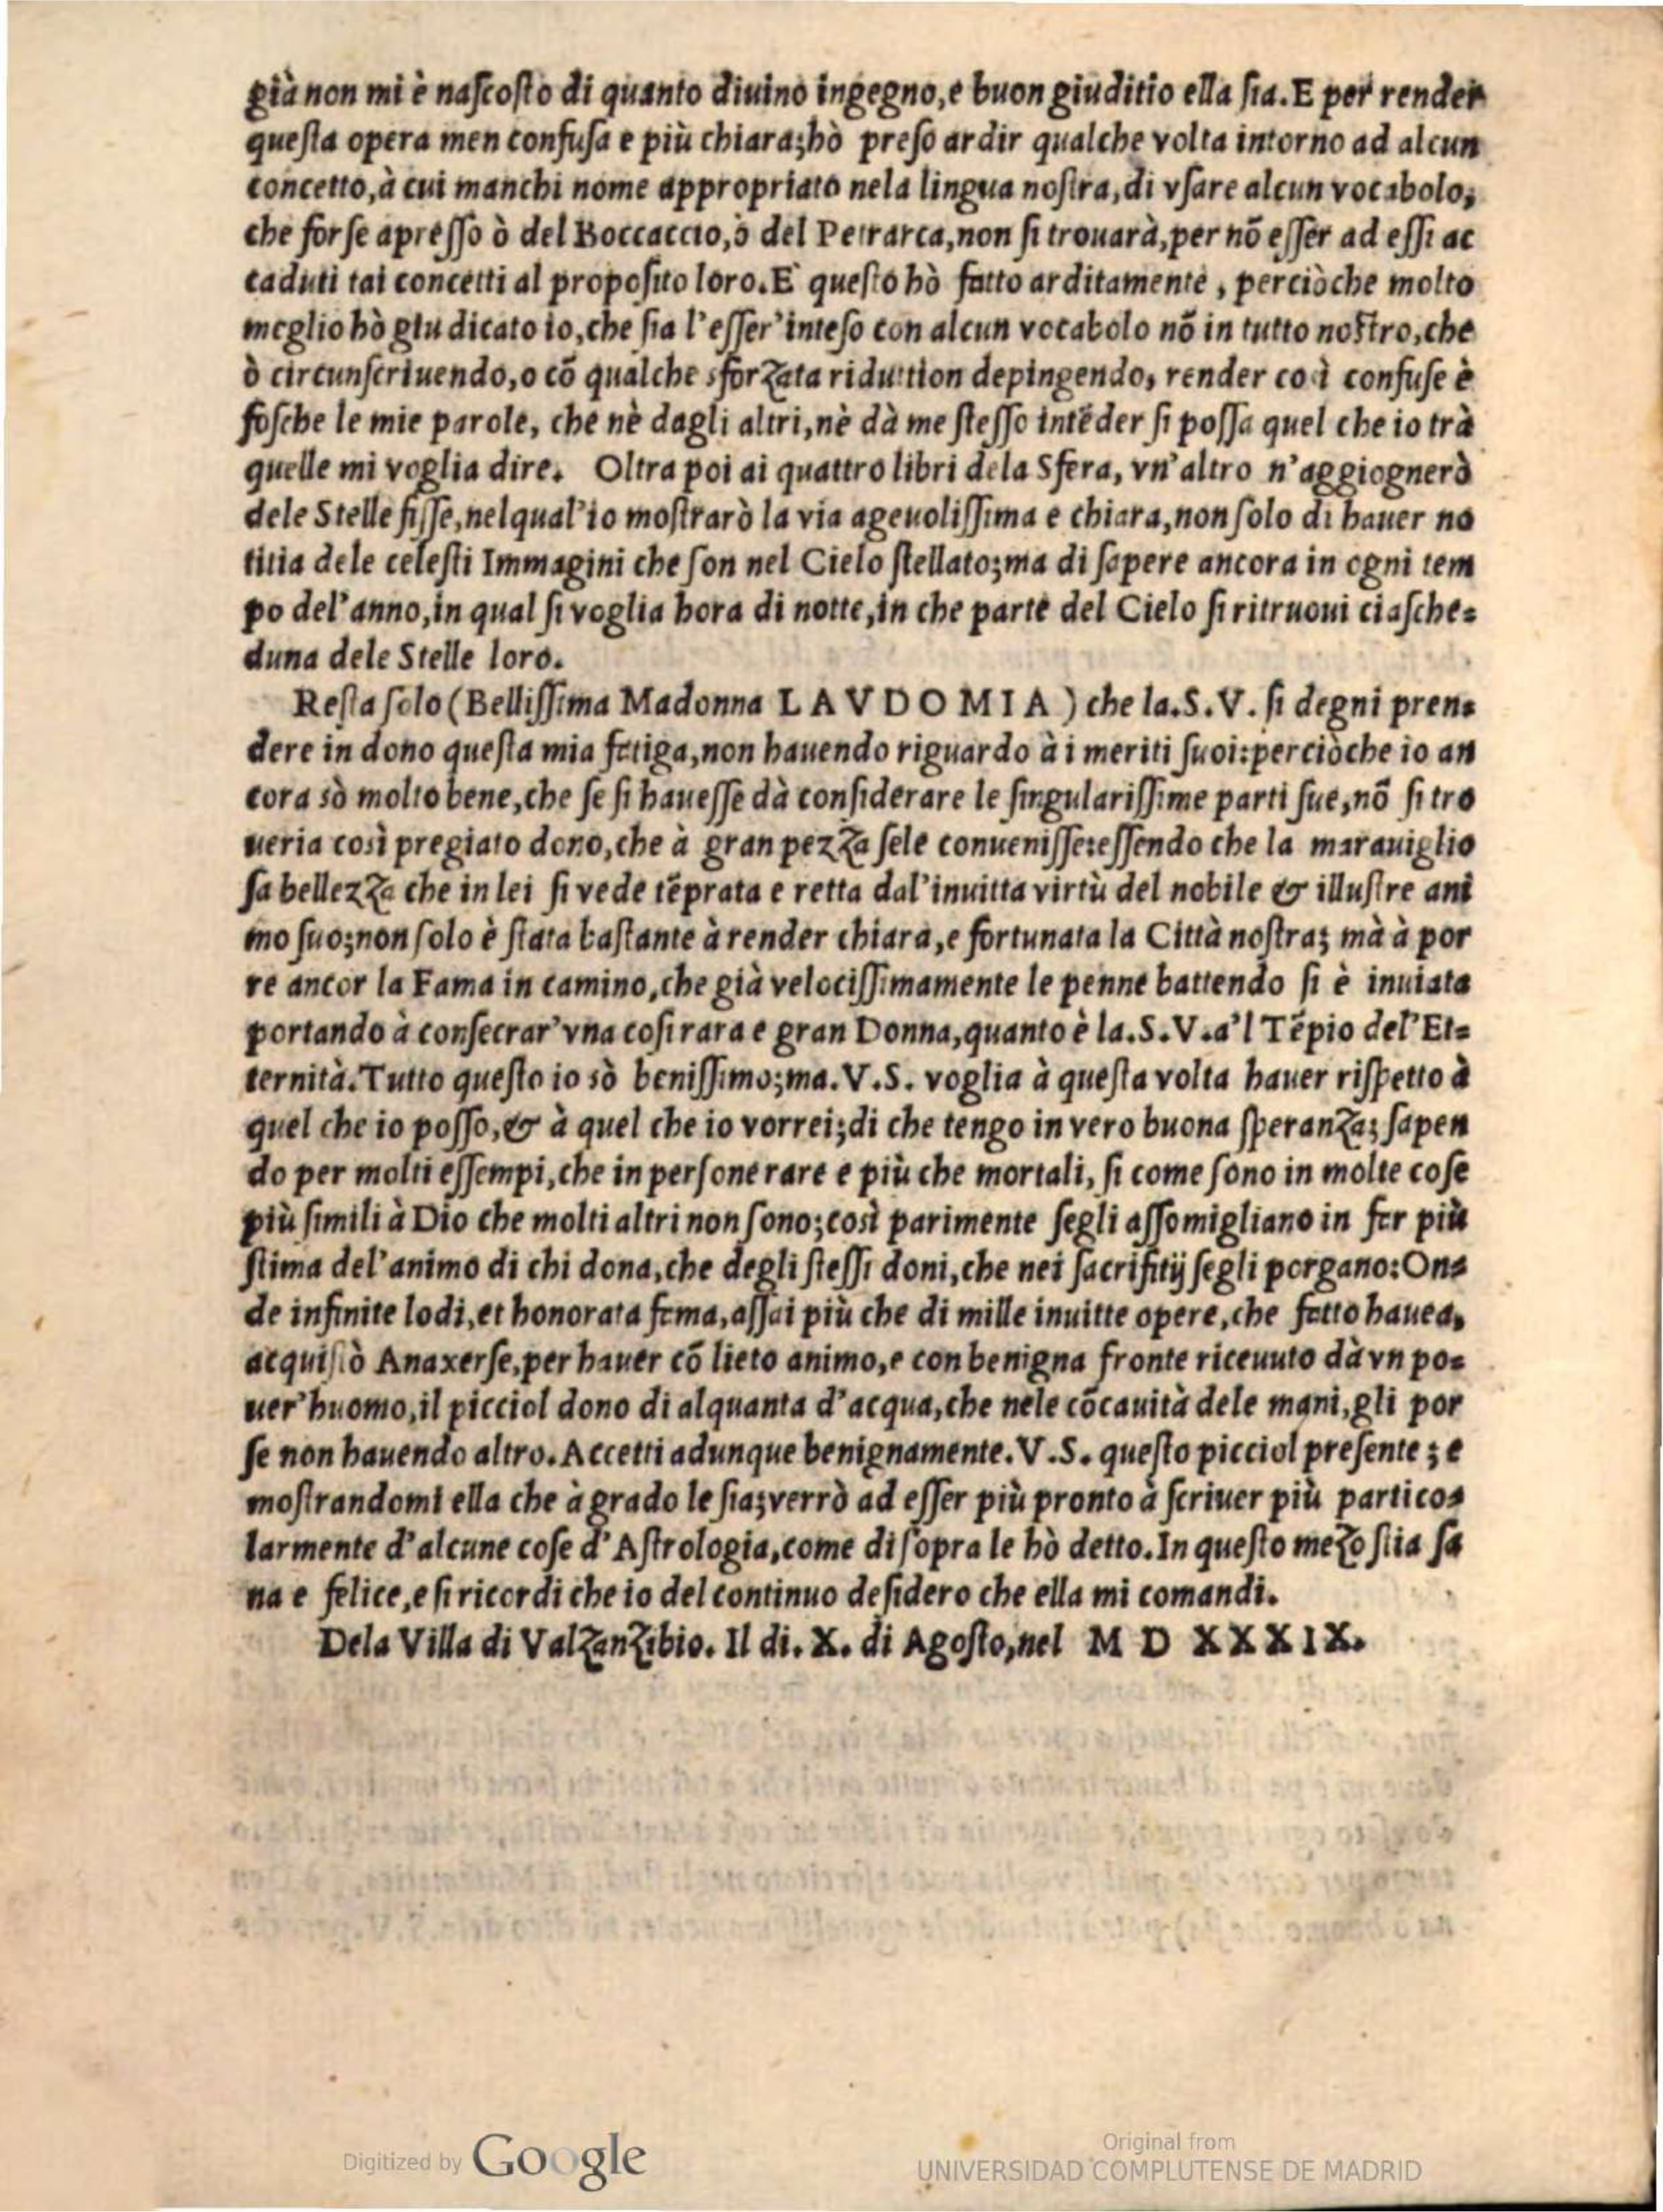 già non mi è naſcoſto di quanto diuino ingegno, e buon giuditio ella ſia. E per render
queſta opera men confuſa e più chiara; hò preſo ardir qualche volta intorno ad alcun
concetto, à cui manchi nome appropriato nela lingua noſtra, di vſare alcun vocabolo,
che forſe apreſſo ò del Boccaccio, ò del Petrarca, non ſi trouarà, per nõ eſſer ad eſſi ac
caduti tai concetti al propoſito loro. E' queſto hò fatto arditamente, perciòche molto
meglio hò giudicato io, che ſia l'eſſer' inteſo con alcun vocabolo nõ in tutto noſtro, che
ò circunſcriuendo, o cõ qualche sforzata riduttion depingendo, render così confuſe è
foſche le mie parole, che nè dagli altri, nè dà me ſteſſo intẽder ſi poſſa quel che io trà
quelle mi voglia dire. Oltra poi ai quattro libri dela Sfera, vn'altro n'aggiognerò
dele Stelle fiſſe, nelqual'io moſtrarò la via ageuoliſſima e chiara, non ſolo di hauer no
titia dele celeſti Immagini che ſon nel Cielo ſtellato; ma di ſapere ancora in ogni tem
po del'anno, in qual ſi voglia hora di notte, in che parte del Cielo ſi ritruoui ciaſche=
duna dele Stelle loro.
Reſta ſolo (Belliſſima Madonna LAVDOMIA) che la. S. V. ſi degni pren=
dere in dono queſta mia fatiga, non hauendo riguardo à i meriti ſuoi: perciòche io an
cora sò molto bene, che ſe ſi haueſſe dà conſiderare le ſingulariſſime parti ſue, nõ ſi tro
ueria così pregiato dono, che à gran pezza ſele conueniſſe: eſſendo che la marauiglio
ſa bellezza che in lei ſi vede tẽprata e retta dal'inuitta virtù del nobile & illuſtre ani
mo ſuo; non ſolo è ſtata baſtante à render chiara, e fortunata la Città noſtra; mà à por
re ancor la Fama in camino, che già velociſſimamente le penne battendo ſi è inuiata
portando à conſecrar' vna coſi rara e gran Donna, quanto è la. S. V. a'l Tẽpio del'Et=
ternità. Tutto queſto io sò beniſſimo; ma. V. S. voglia à queſta volta hauer riſpetto à
quel che io poſſo, & à quel che io vorrei; di che tengo in vero buona ſperanza; ſapen
do per molti eſſempi, che in perſone rare e più che mortali, ſi come ſono in molte coſe
più ſimili à Dio che molti altri non ſono; così parimente ſegli aſſomigliano in far più
ſtima del'animo di chi dona, che degli ſteſſi doni, che nei ſacrifitij ſegli porgano: On=
de infinite lodi, et honorata fama, aſſai più che di mille inuitte opere, che fatto hauea,
acquiſtò Anaxerſe, per hauer cõ lieto animo, e con benigna fronte riceuuto dà vn po=
uer' huomo, il picciol dono di alquanta d'acqua, che nele cõcauità dele mani, gli por
ſe non hauendo altro. Accetti adunque benignamente. V. S. queſto picciol preſente; e
moſtrandomi ella che à grado le ſia; verrò ad eſſer più pronto à ſcriuer più partico=
larmente d'alcune coſe d'Aſtrologia, come di ſopra le hò detto. In queſto mezo ſtia ſa
na e felice, e ſi ricordi che io del continuo deſidero che ella mi comandi.
Dela Villa di Valzanzibio. Il di. X. di Agoſto, nel M D XXXIX.
Digitized by Google
Original from
UNIVERSIDAD COMPLUTENSE DE MADRID